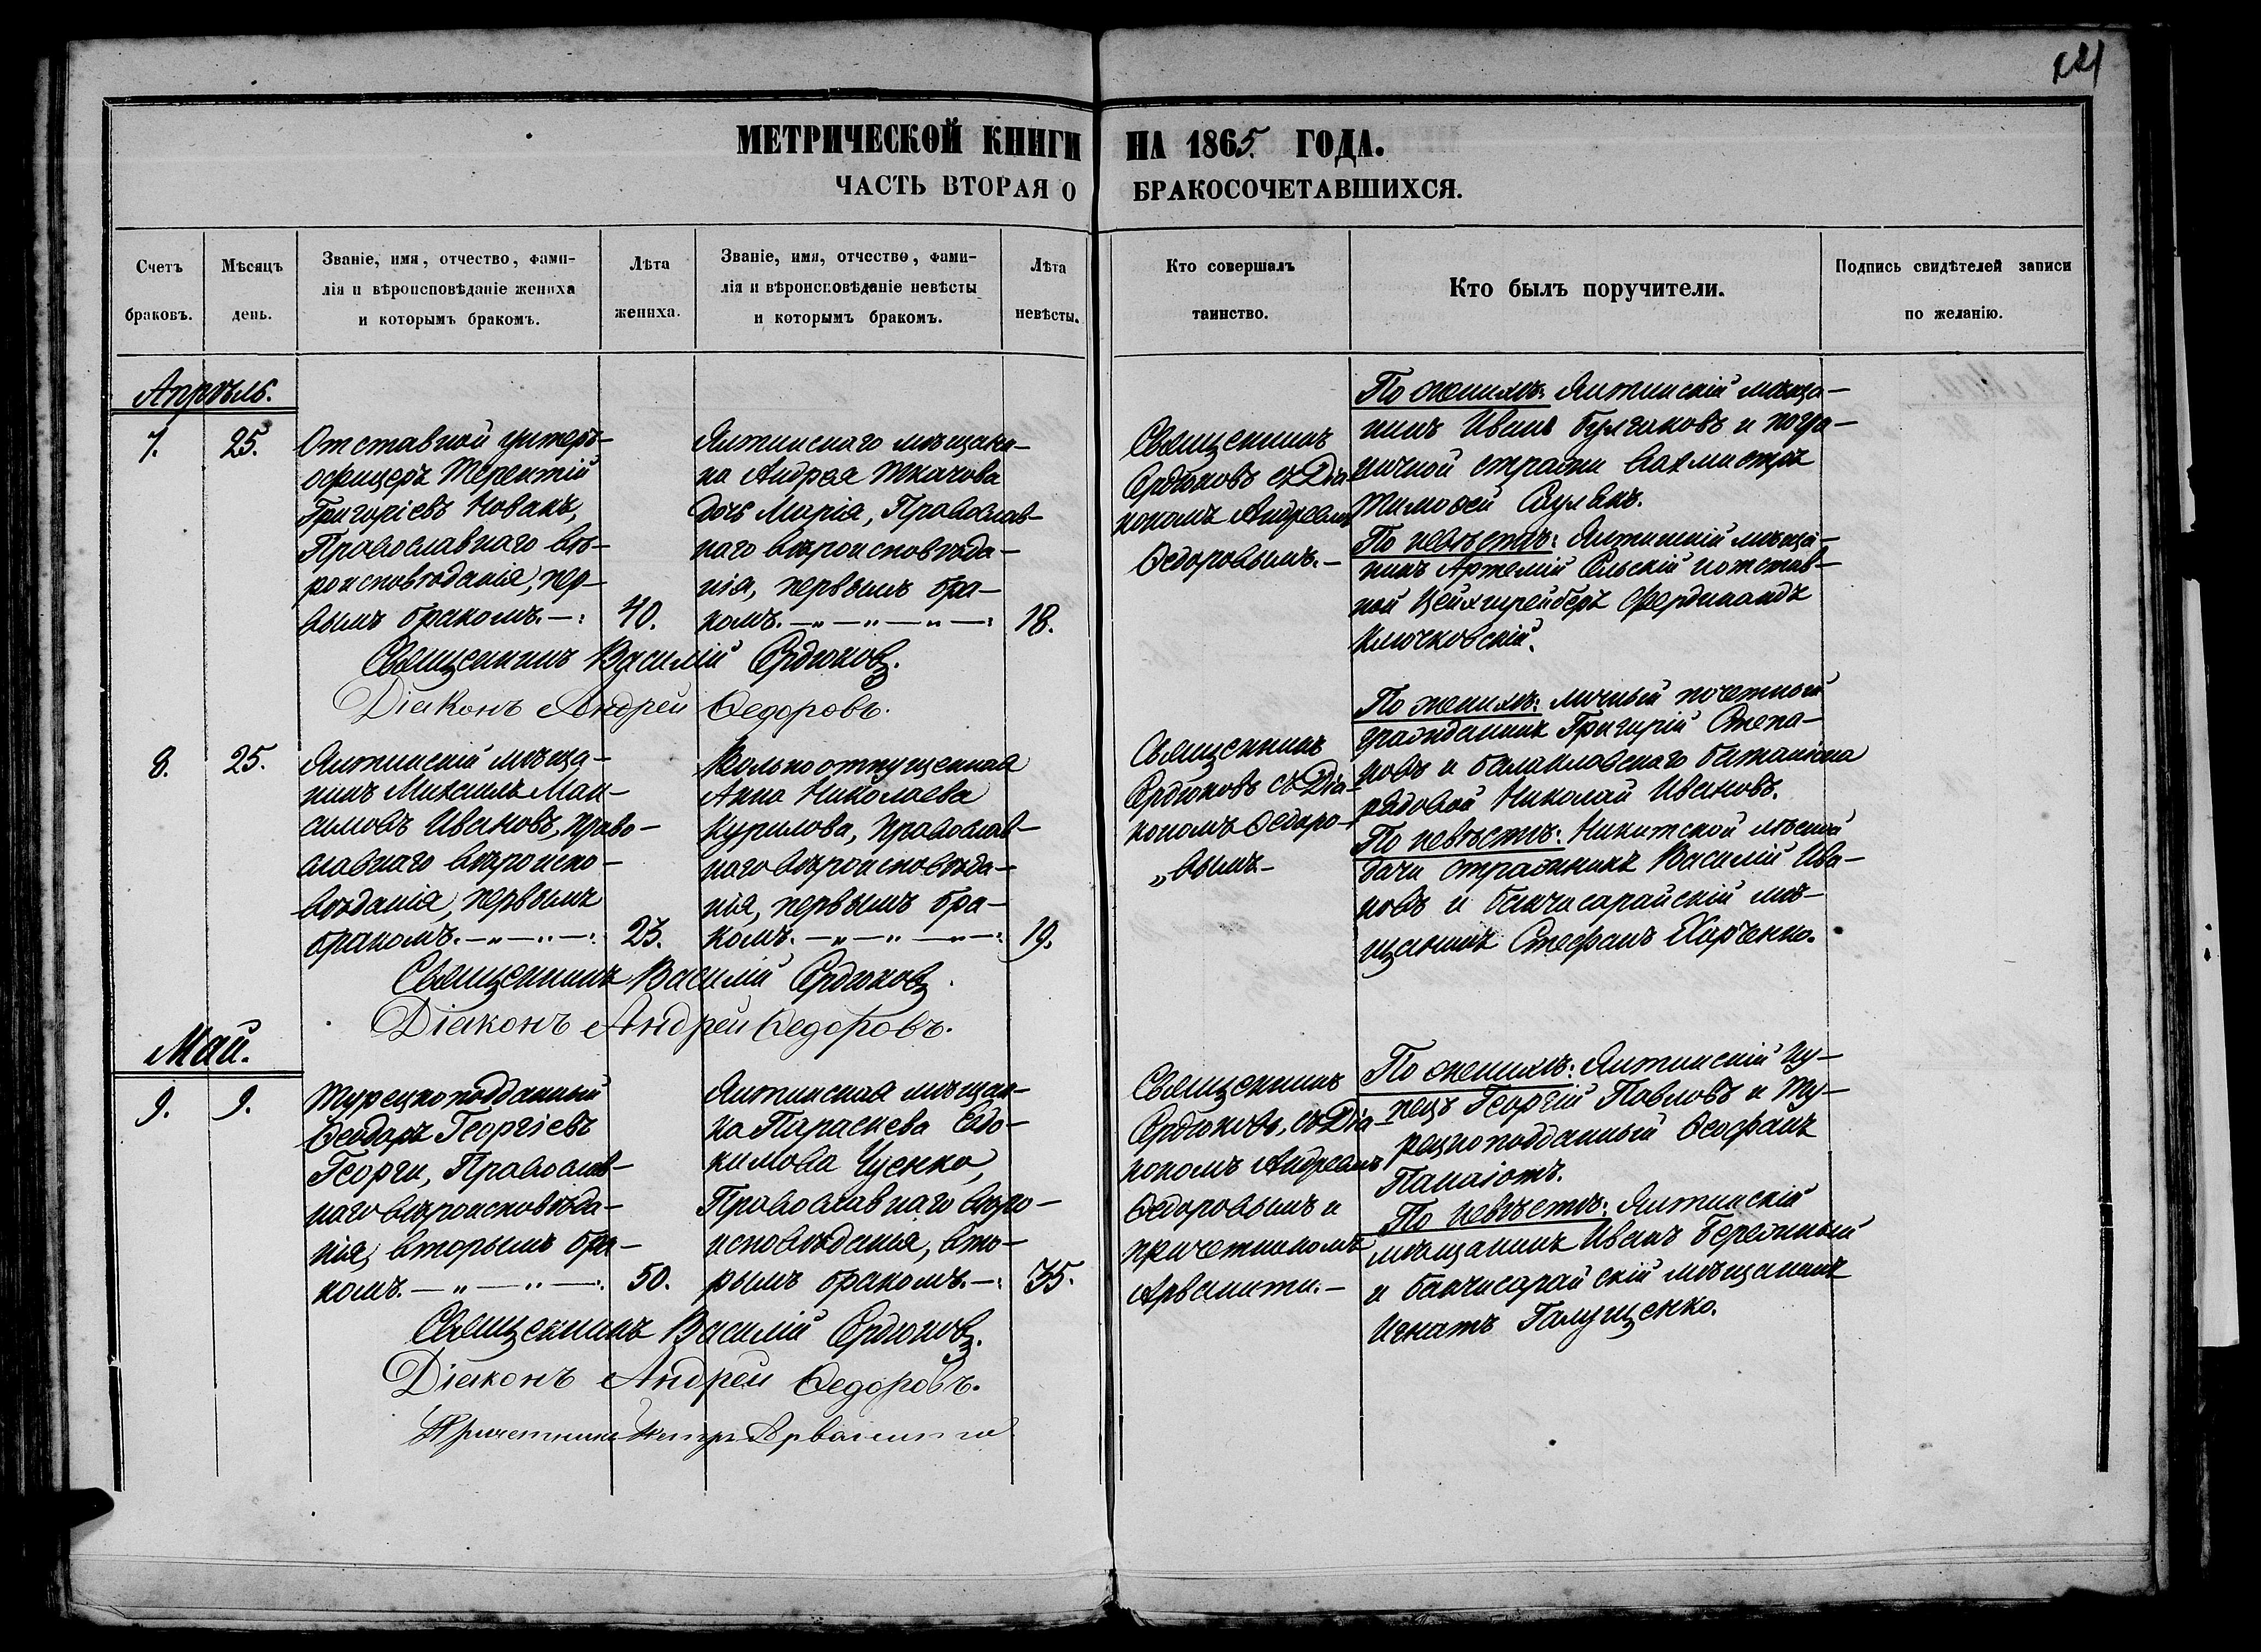 121
МЕТРИЧЕСКОЙ КНИГИ НА 1865. ГОДА.
ЧАСТЬ ВТОРАЯ О БРАКОСОЧЕТАВШИХСЯ.
Счетъ
браковъ.
Мѣсяцъ
день.
Званіе, имя, отчество, фами-
лія и вѣроисповѣданіе жениха
и которымъ бракомъ.
Лѣта
жениха.
Званіе, имя, отчество, фами-
лія и вѣроисповѣданіе невѣсты
и которымъ бракомъ.
Лѣта
невѣсты.
Кто совершалъ
таинство.
Кто былъ поручители.
Подпись свидѣтелей записи
по желанію.
Апрѣль.
7.
25.
Отставной унтеръ-
офицеръ Терентій
Григоріевъ Новакъ,
Православнаго вѣ-
роисповѣданія, пер-
вымъ бракомъ.
40.
Ялтинскаго мѣщани-
на Андрея Ткачова
дочь Марія, Православ-
наго вѣроисповѣда-
нія, первымъ бра-
комъ.
18.
Священникъ
Сердюковъ съ Діа-
кономъ Андреемъ
Ѳедоровымъ.
По женихѣ: Ялтинскій мѣща-
нинъ Иванъ Булгаковъ и погра-
ничной стражи вахмистръ
Тимофей Саулякъ.
По невѣстѣ: Ялтинскій мѣща-
нинъ Артемій Сельскій и отстав-
ной Цейхшрейберъ Фердинандъ
Ключковскій.
Священникъ Василій Сердюковъ.
Діаконъ Андрей Ѳедоровъ.
8.
25.
Ялтинскій мѣща-
нинъ Михаилъ Мак-
симовъ Ивановъ, право-
славнаго вѣроиспо-
вѣданія, первымъ
бракомъ.
23.
Вольноотпущенная
Анна Николаева
Курилова, православ-
наго вѣроисповѣда-
нія, первымъ бра-
комъ.
19.
Священникъ
Сердюковъ съ Діа-
кономъ Ѳедоро-
„вымъ
По женихѣ: личный почетный
гражданинъ Григорій Степа-
новъ и балаклавскаго баталіона
рядовой Николай Ивановъ.
По невѣстѣ: Никитской лѣсной
дачи стражникъ Василій Ива-
новъ и бахчисарайскій мѣ-
щанинъ Стефанъ Харченко.
Священникъ Василій Сердюковъ
Діаконъ Андрей Ѳедоровъ.
Май.
9.
9.
Турецкоподданный
Ѳеодоръ Георгіевъ
Георги, Православ-
наго вѣроисповѣда-
нія, вторымъ бра-
комъ.
50.
Ялтинская мѣщан-
ка Параскева Евдо-
кимова Чуенко,
Православнаго вѣро-
исповѣданія, вто-
рымъ бракомъ.
35.
Священникъ
Сердюковъ, съ Діа-
кономъ Андреемъ
Ѳедоровымъ и
причетникомъ
Арванити.
По женихѣ: Ялтинскій ку-
пецъ Георгій Павловъ и Ту-
рецкоподданный Ѳеофанъ
Панаіотъ.
По невѣстѣ: Ялтинскій
мѣщанинъ Иванъ Бережный
и бахчисарайскій мѣщанинъ
Игнатъ Галущенко.
Священникъ Василій Сердюковъ.
Діаконъ Андрей Ѳедоровъ.
Причетникъ Петръ Арванити